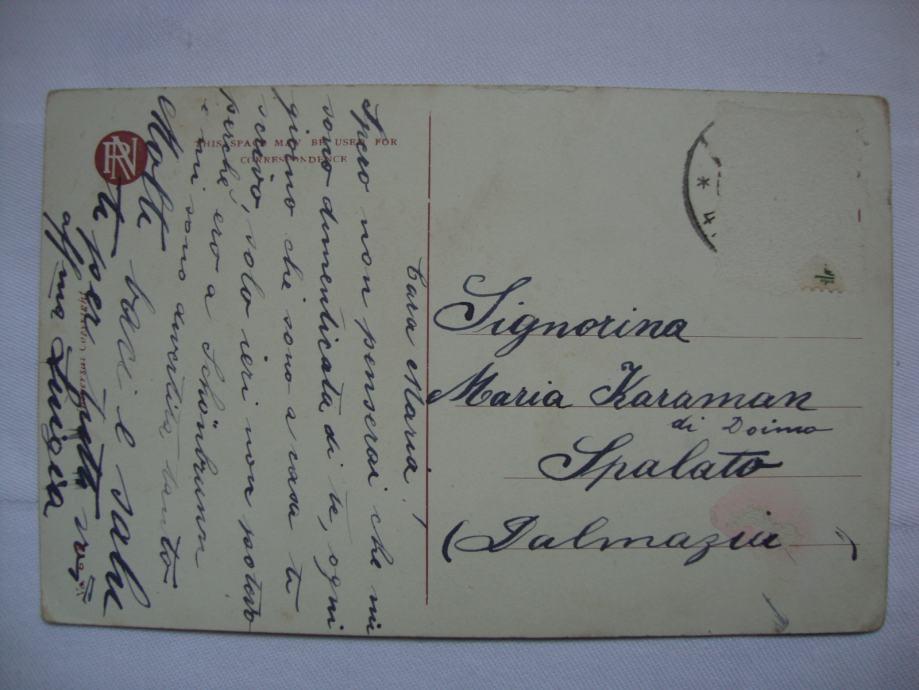 THIS SPACE MAY BE USED FOR
CORRESPONDENCE
Cara Maria!
Spero non penserai che mi
sono dimenticata di te, ogni
giorno che sono a casa ti
scrivo, solo ieri non potevo
perchè ero a Schönbrunn
e mi sono divertita tanto
Molti baci e salu
ti per tutti voi
affma Luigia
Signorina
Maria Karaman
di Doimo
Spalato
(Dalmazia)